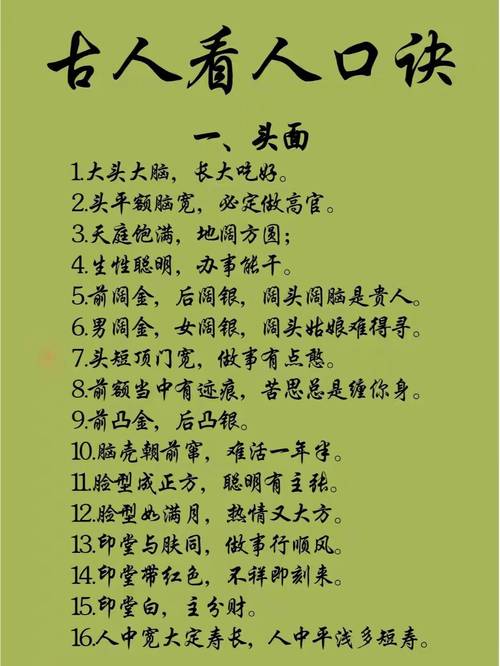 古人看人口诀
一、头面
1.大头大脑，长大吃好。
2.头平额脑宽，必定做高官。
3.天庭饱满，地阔方圆；
4.生性聪明，办事能干。
5.前阔金，后阔银，阔头阔脑是贵人。
6.男阔金，女阔银，阔头姑娘难得寻。
7.头短顶门宽，做事有点憨。
8.前额当中有迹痕，苦思总是缠你身。
9.前凸金，后凸银。
10.脑壳朝前窜，难活一年半。
11.脸型成正方，聪明有主张。
12.脸型如满月，热情又大方。
13.印堂与肤同，做事行顺风。
14.印堂带红色，不祥即刻来。
15.印堂白，主分财。
16.人中宽大定寿长，人中平浅多短寿。